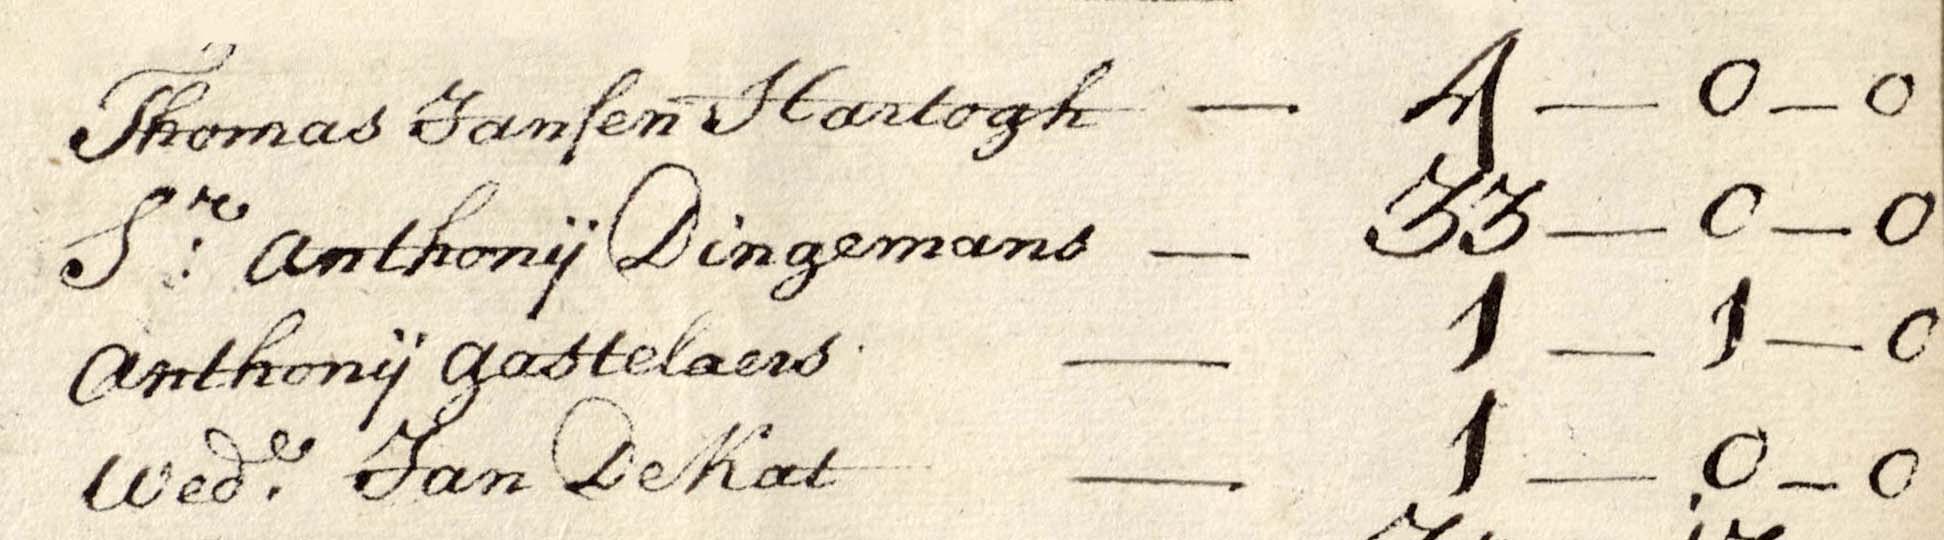 Thomas Jansen Hartogh — 4 — 0 — 0
Sr: Anthonij Dingemans — 33 — 0 — 0
Anthonij Gastelaers — 1 — 1 — 0
Wede. Jan De Kat — 1 — 0 — 0